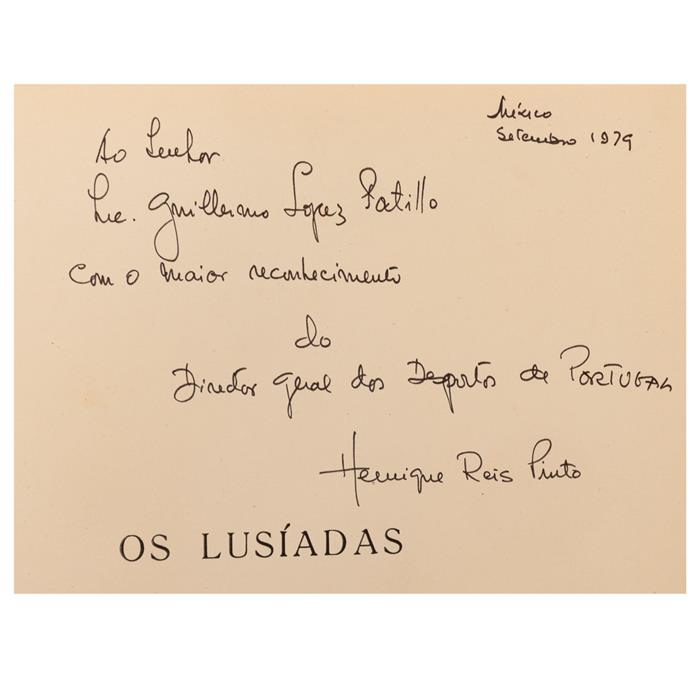 México
Setembro 1979
Ao Senhor
Lic. Guillermo Lopez Patillo
com o maior reconhecimento
do
Director geral dos Desportos de PORTUGAL
Henrique Reis Pinto
OS LUSÍADAS